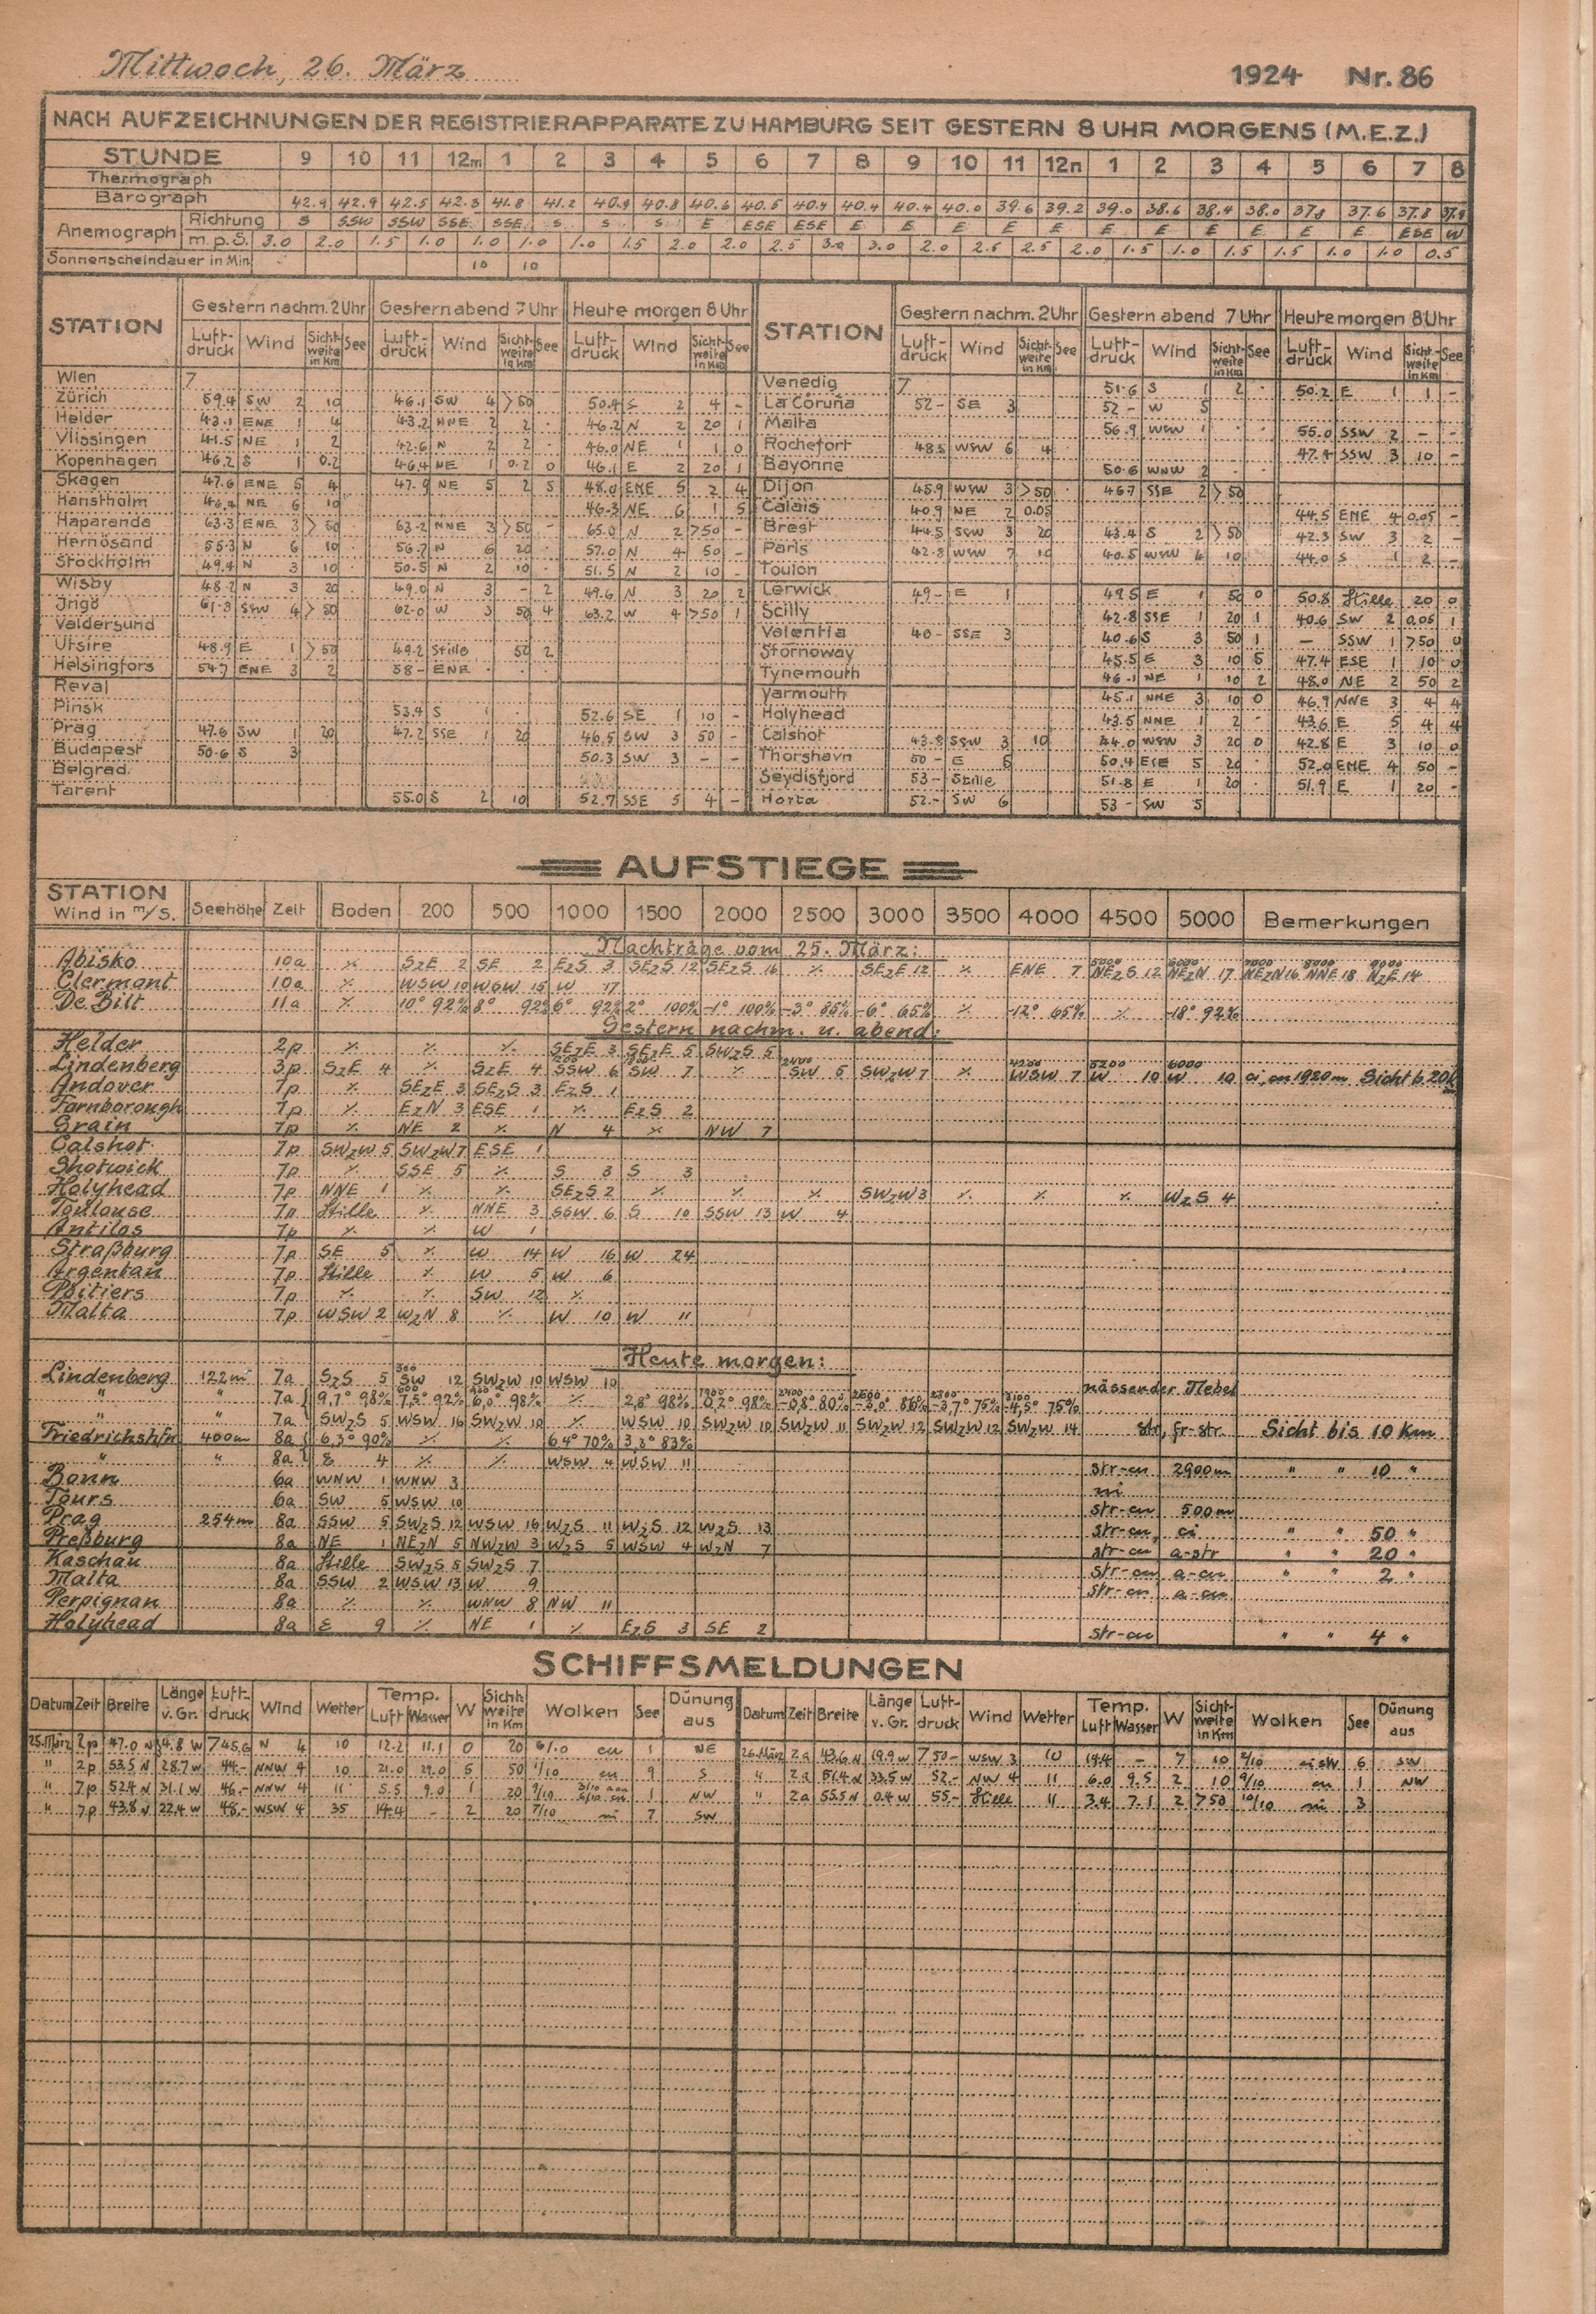 Mittwoch, 26. März 1924 Nr. 86
NACH AUFZEICHNUNGEN DER REGISTRIERAPPARATE ZU HAMBURG SEIT GESTERN 8 UHR MORGENS (M.E.Z.)
STUNDE 9 10 11 12m 1 2 3 4 5 6 7 8 9 10 11 12n 1 2 3 4 5 6 7 8
Thermograph
Barograph 42.9 42.9 42.5 42.3 41.8 41.2 40.9 40.8 40.6 40.5 40.4 40.4 40.4 40.0 39.6 39.2 39.0 38.6 38.4 38.0 37.8 37.6 37.8 37.9
Anemograph Richtung S SSW SSW SSE SSE S S S E ESE ESE E E E E E E E E E E E ESE W
m.p.S. 3.0 2.0 1.5 1.0 1.0 1.0 1.0 1.5 2.0 2.0 2.5 3.0 3.0 2.0 2.5 2.5 2.0 1.5 1.0 1.5 1.5 1.0 1.0 0.5
Sonnenscheindauer in Min. 10 10
STATION Gestern nachm. 2 Uhr Gestern abend 7 Uhr Heute morgen 8 Uhr STATION Gestern nachm. 2 Uhr Gestern abend 7 Uhr Heute morgen 8 Uhr
Luft-druck Wind Sicht-weite in Km See Luft-druck Wind Sicht-weite in Km See Luft-druck Wind Sicht-weite in Km See Luft-druck Wind Sicht-weite in Km See Luft-druck Wind Sicht-weite in Km See Luft-druck Wind Sicht-weite in Km See
Wien 7 Venedig 7 51.6 S 1 2 50.2 E 1 1 -
Zürich 59.4 SW 2 10 46.1 SW 4 >50 50.4 S 2 4 - La Coruña 52- SE 3 52- W 5
Helder 43.1 ENE 1 4 43.2 NNE 2 2 46.2 N 2 20 1 Malta 56.9 WSW 1 55.0 SSW 2 - -
Vlissingen 41.5 NE 1 2 42.6 N 2 2 46.0 NE 1 1 0 Rochefort 48.5 WSW 6 4 47.4 SSW 3 10 -
Kopenhagen 46.2 S 1 0.2 46.4 NE 1 0.2 0 46.1 E 2 20 1 Bayonne 50.6 WNW 2
Skagen 47.6 ENE 5 4 47.9 NE 5 2 5 48.0 ENE 5 2 4 Dijon 45.9 WSW 3 >50 46.7 SSE 2 >50
Hanstholm 46.4 NE 6 10 46.3 NE 6 1 5 Calais 40.9 NE 2 0.05 44.5 ENE 4 0,05 -
Haparanda 63.3 ENE 3 >50 63.2 NNE 3 >50 - 65.0 N 2 >50 - Brest 44.5 SSW 3 20 43.4 S 2 >50 42.3 SW 3 2 -
Hernösand 55.3 N 6 10 56.7 N 6 20 57.0 N 4 50 - Paris 42.8 WSW 7 10 40.5 WSW 4 10 44.0 S 1 2 -
Stockholm 49.4 N 3 10 50.5 N 2 10 51.5 N 2 10 - Toulon
Wisby 48.2 N 3 20 49.0 N 3 - 2 49.6 N 3 20 2 Lerwick 49- E 1 49.5 E 1 50 0 50.8 Stille 20 0
Jngö 61.3 SSW 4 >50 62.0 W 3 50 4 63.2 W 4 >50 1 Scilly 42.8 SSE 1 20 1 40.6 SW 2 0,05 1
Valdersund Valentia 40- SSE 3 40.6 S 3 50 1 - SSW 1 >50 0
Utsire 48.9 E 1 >50 49.2 Stille 50 2 Stornoway 45.5 E 3 10 5 47.4 ESE 1 10 0
Helsingfors 54.7 ENE 3 2 58- ENE Tynemouth 46.1 NE 1 10 2 48.0 NE 2 50 2
Reval Yarmouth 45.1 NNE 3 10 0 46.9 NNE 3 4 4
Pinsk 53.4 S 1 52.6 SE 1 10 - Holyhead 43.5 NNE 1 2 - 43.6 E 5 4 4
Prag 47.6 SW 1 20 47.2 SSE 1 20 46.5 SW 3 50 - Calshot 43.8 SSW 3 10 44.0 WSW 3 20 0 42.8 E 3 10 0
Budapest 50.6 S 3 50.3 SW 3 - - Thorshavn 50- E 6 50.4 ESE 5 20 52.0 ENE 4 50 -
Belgrad. Seydisfjord 53- Stille 51.8 E 1 20 51.9 E 1 20 -
Tarent 55.0 S 2 10 52.7 SSE 5 4 - Horta 52.- SW 6 53- SW 5
AUFSTIEGE
STATION Wind in m/S. Seehöhe Zeit Boden 200 500 1000 1500 2000 2500 3000 3500 4000 4500 5000 Bemerkungen
Nachträge vom 25. März:
Abisko 10a ٪ SzE 2 SE 2 EzS 3 SEzS 12 SEzS 16 ٪ SEzE 12 ٪ ENE 7 5000 NEzS 12 6000 NEzN 17 7000 NEzN 16 8000 NNE 18 9000 NzE 14
Clermont 10a ٪ WSW 10 WSW 15 W 17
De Bilt 11a ٪ 10° 92% 8° 92% 6° 92% 2° 100% -1° 100% -3° 85% -6° 65% ٪ -12° 65% ٪ -18° 92%
Gestern nachm. u. abend:
Helder 2p ٪ ٪ ٪ SEzE 3 SEzE 5 SWzS 5
Lindenberg 3p SzE 4 ٪ SzE 4 SSW 6 SW 7 ٪ 2400 SW 5 SWzW 7 ٪ 4200 WSW 7 5200 W 10 6000 W 10 ci cu 1920m Sicht b. 20 km
Andover 7p ٪ SEzE 3 SEzS 3 EzS 1
Farnborough 7p ٪ EzN 3 ESE 1 ٪ EzS 2
Grain 7p ٪ NE 2 ٪ N 4 ٪ NW 7
Calshot 7p SWzW 5 SWzW 7 ESE 1
Shotwick 7p ٪ SSE 5 ٪ S 3 S 3
Holyhead 7p NNE 1 ٪ ٪ SEzS 2 ٪ ٪ ٪ SWzW 3 ٪ ٪ ٪ WzS 4
Toulouse 7p Stille ٪ NNE 3 SSW 6 S 10 SSW 13 W 4
Antilos 7p ٪ ٪ W 1
Straßburg 7p SE 5 ٪ W 14 W 16 W 24
Argentan 7p Stille ٪ W 5 W 6
Poitiers 7p ٪ ٪ SW 12 ٪
Malta 7p WSW 2 WzN 8 ٪ W 10 W 11
Heute morgen:
Lindenberg 122m 7a SzS 5 300 SW 12 SWzW 10 WSW 10 nässender Nebel
" " 7a 9,7° 98% 7,5° 92% 6,0° 98% ٪ 2,8° 98% 1900 0,2° 98% 2400 -0,8° 80% 2600 -3,0° 86% 2800 -3,7° 75% 3100 -4,5° 75%
" " 7a SWzS 5 WSW 16 SWzW 10 ٪ WSW 10 SWzW 10 SWzW 11 SWzW 12 SWzW 12 SWzW 14 str, fr-str. Sicht bis 10 Km
Friedrichshfn 400m 8a 6,3° 90% ٪ ٪ 6,4° 70% 3,3° 83%
" " 8a E 4 ٪ ٪ WSW 4 WSW 11 str-cu 2900m " " 10 "
Bonn 6a WNW 1 WNW 3 ni
Tours 6a SW 5 WSW 10 str-cu 500m
Prag 254m 8a SSW 5 SWzS 12 WSW 16 WzS 11 WzS 12 WzS 13 str-cu, ci " " 50 "
Preßburg 8a NE 1 NEzN 5 NWzW 3 WzS 5 WSW 4 WzN 7 str-cu a-str " " 20 "
Kaschau 8a Stille SWzS 5 SWzS 7 str-cu a-cu " " 2 "
Malta 8a SSW 2 WSW 13 W 9 str-cu a-cu
Perpignan 8a ٪ ٪ WNW 8 NW 11
Holyhead 8a E 9 ٪ NE 1 ٪ EzS 3 SE 2 str-cu " " 4 "
SCHIFFSMELDUNGEN
Datum Zeit Breite Länge v. Gr. Luft-druck Wind Wetter Temp. Luft Wasser W Sicht-weite in Km Wolken See Dünung aus Datum Zeit Breite Länge v. Gr. Luft-druck Wind Wetter Temp. Luft Wasser W Sicht-weite in Km Wolken See Dünung aus
25. März 2p 47.0 N 34.8 W 745.6 N 4 10 12.2 11.1 0 20 6/10 cu 1 NE 26. März 2a 43.6 N 19.9 W 750- WSW 3 10 14.4 - 7 10 2/10 ci str 6 SW
" 2p 53.5 N 28.7 W 44.- NNW 4 10 21.0 29.0 5 50 1/10 cu 9 S " 2a 51.4 N 33.5 W 52.- NW 4 11 6.0 9.5 2 10 9/10 cu 1 NW
" 7p 52.4 N 31.1 W 46.- NNW 4 11 5.5 9.0 1 20 9/10 1 NW " 2a 55.5 N 0.4 W 55.- Stille 11 3.4 7.1 2 >50 10/10 ni 3
" 7p 43.8 N 22.4 W 48.- WSW 4 35 14.4 - 2 20 7/10 ni 7 SW